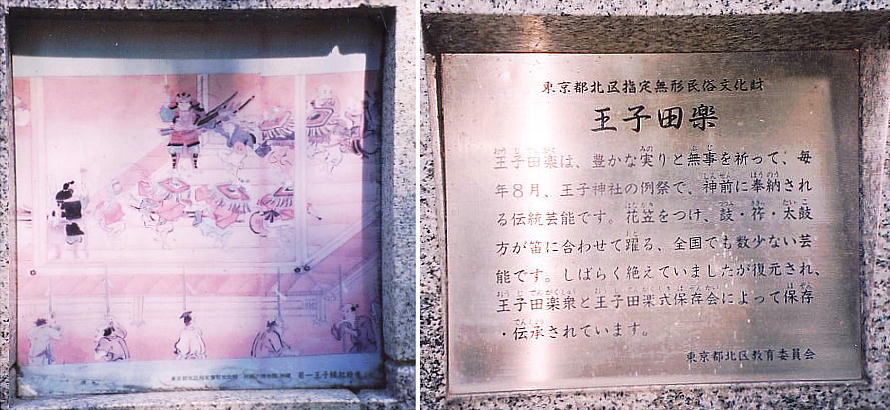 東京都北区指定無形民俗文化財
王子田楽
王子田楽は、豊かな実りと無事を祈って、毎
年8月、王子神社の例祭で、神前に奉納され
る伝統芸能です。花笠をつけ、鼓・筰・太鼓
方が笛に合わせて躍る、全国でも数少ない芸
能です。しばらく絶えていましたが復元され、
王子田楽衆と王子田楽式保存会によって保存
・伝承されています。
東京都北区教育委員会
若一王子縁起絵巻